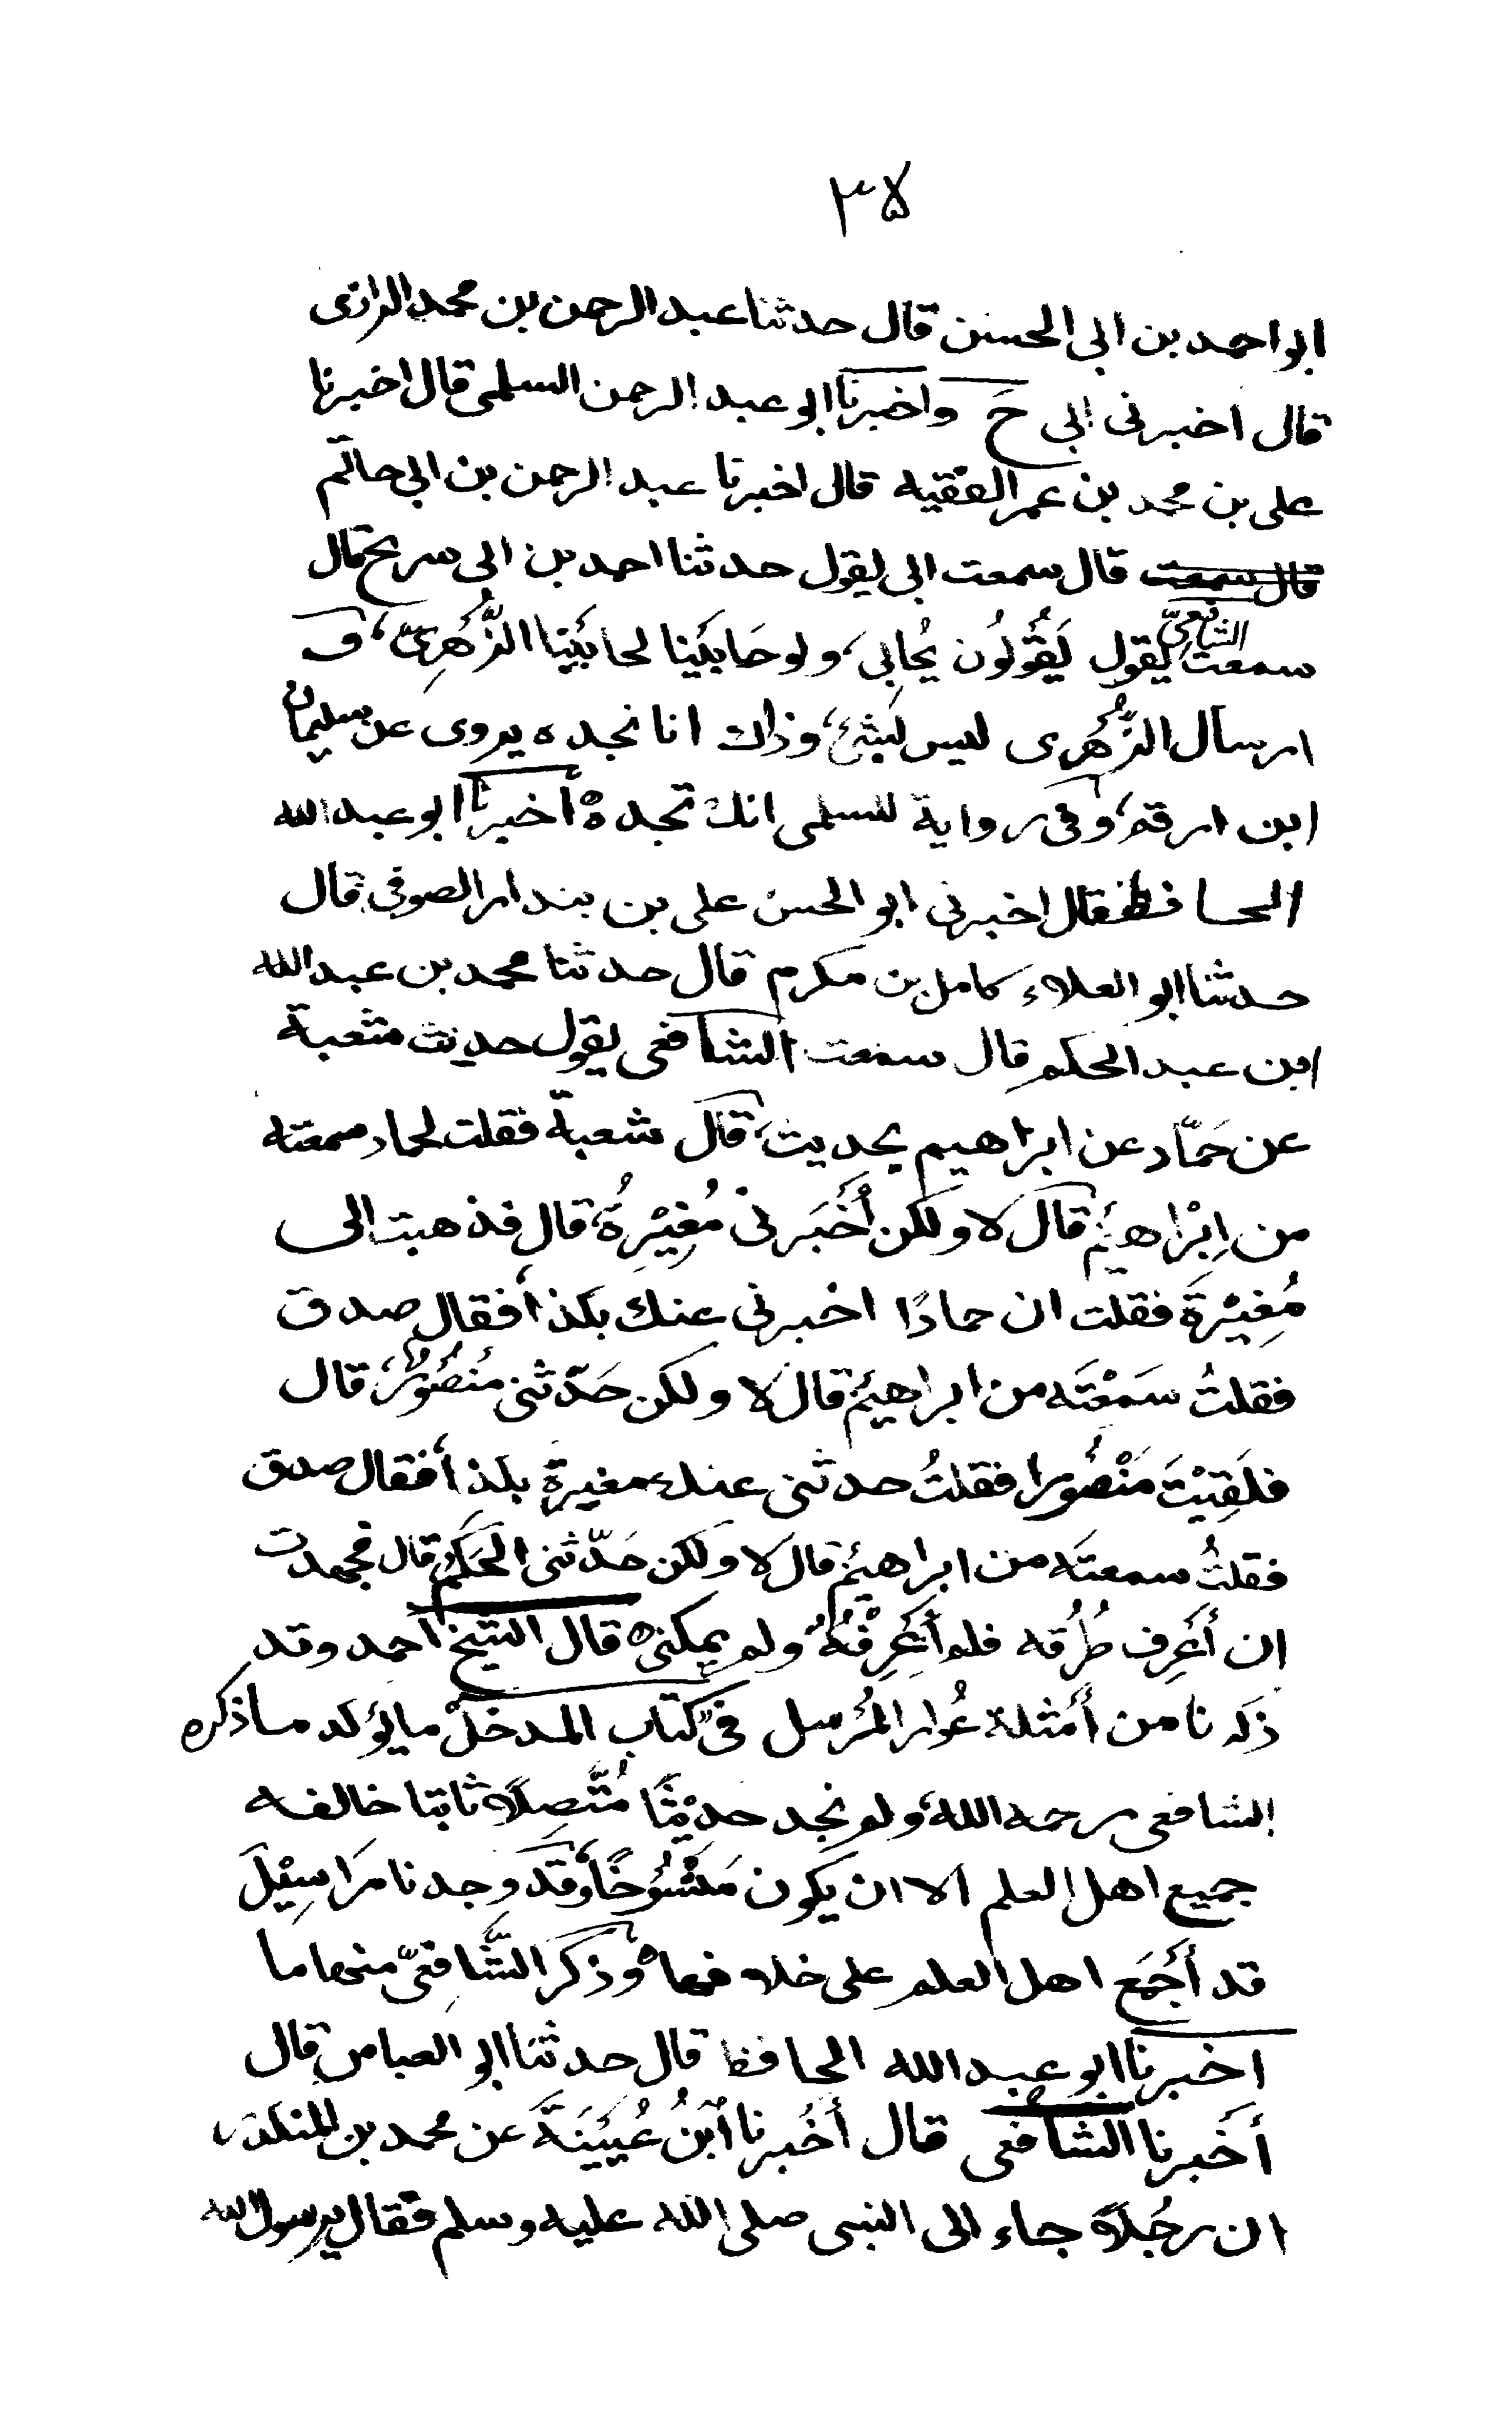 ٣٥
ابو احمد بن ابى الحسن قال حدثنا عبد الرحمن بن محمد الرازى
قال اخبرنى ابى ح واخبرنا ابو عبد الرحمن السلمى قال اخبرنا
على بن محمد بن عمر الفقيه قال اخبرنا عبد الرحمن بن ابى حاتم
قال سمعت قال سمعت ابى يقول حدثنا احمد بن ابى سريج قال
سمعت الشافعىّ يقول يَقُولُون يُحابى، ولو حَابَيْنا لحابَيْنا الزُّهْرِىّ، و
ارسال الزُّهْرى ليس بشئ، وذاك انا نجده يروى عن سليمان
ابن ارقم، وفى رواية السلمى انك تجده أخبرنا ابو عبد الله
الحافظ قال اخبرنى ابو الحسن على بن بندار الصوفى قال
حدثنا ابو العلاء كامل بن مكرم قال حدثنا محمد بن عبد الله
ابن عبد الحكم قال سمعت الشافعى يقول حديث شعبة
عن حَمّاد عن ابراهيم بحديث، قال شعبة فقلت لحماد سمعته
من اِبْراهيْم قال لا ولكن أَخْبَرنى مُغِيْرةُ، قال فذهبت الى
مُغِيْرةَ فقلت ان حمادًا اخبرنى عنك بكذا، فقال صدق
فقلتُ سَمعْتَه من ابراهيْمَ قال لا ولكن حَدّثنى مَنْصُورٌ، قال
فلَقِيْتُ مَنْصُورا فقلتُ حدثنى عنك مغيرة بكذا، فقال صدق
فقلتُ سمعتَه من ابراهيْمَ قال لا ولكن حَدّثنى الحَكَمُ قال فجهدت
ان أَعْرِف طُرُقه فلم أَعْرِفْهُ ولم يمكنى ه قال الشيخ أحمد وقد
ذكرنا من أَمْثلة عُوار المُرْسل فى كتاب المدخل ما يؤكد ما ذكره
الشافعى رحمه الله، ولم نجد حديْثًا مُتَّصِلًا ثابتا خالفه
جميع اهل العلم الا ان يكون مَنْسُوْخًا، وقَد وجدنا مَرَاسِيْلَ
قد أَجْمَع اهل العلم على خلافها، وذكر الشَّافِعىّ منها ما
اخبرنا ابو عبد الله الحافظ قال حدثنا ابو العباس قال
أَخْبرنا الشافعى قال أَخْبرنا ابْنُ عُيَيْنَةَ عن محمد بن المنكدر
ان رجُلًا جاء الى النبى صلى الله عليه وسلم فقال يرسول الله